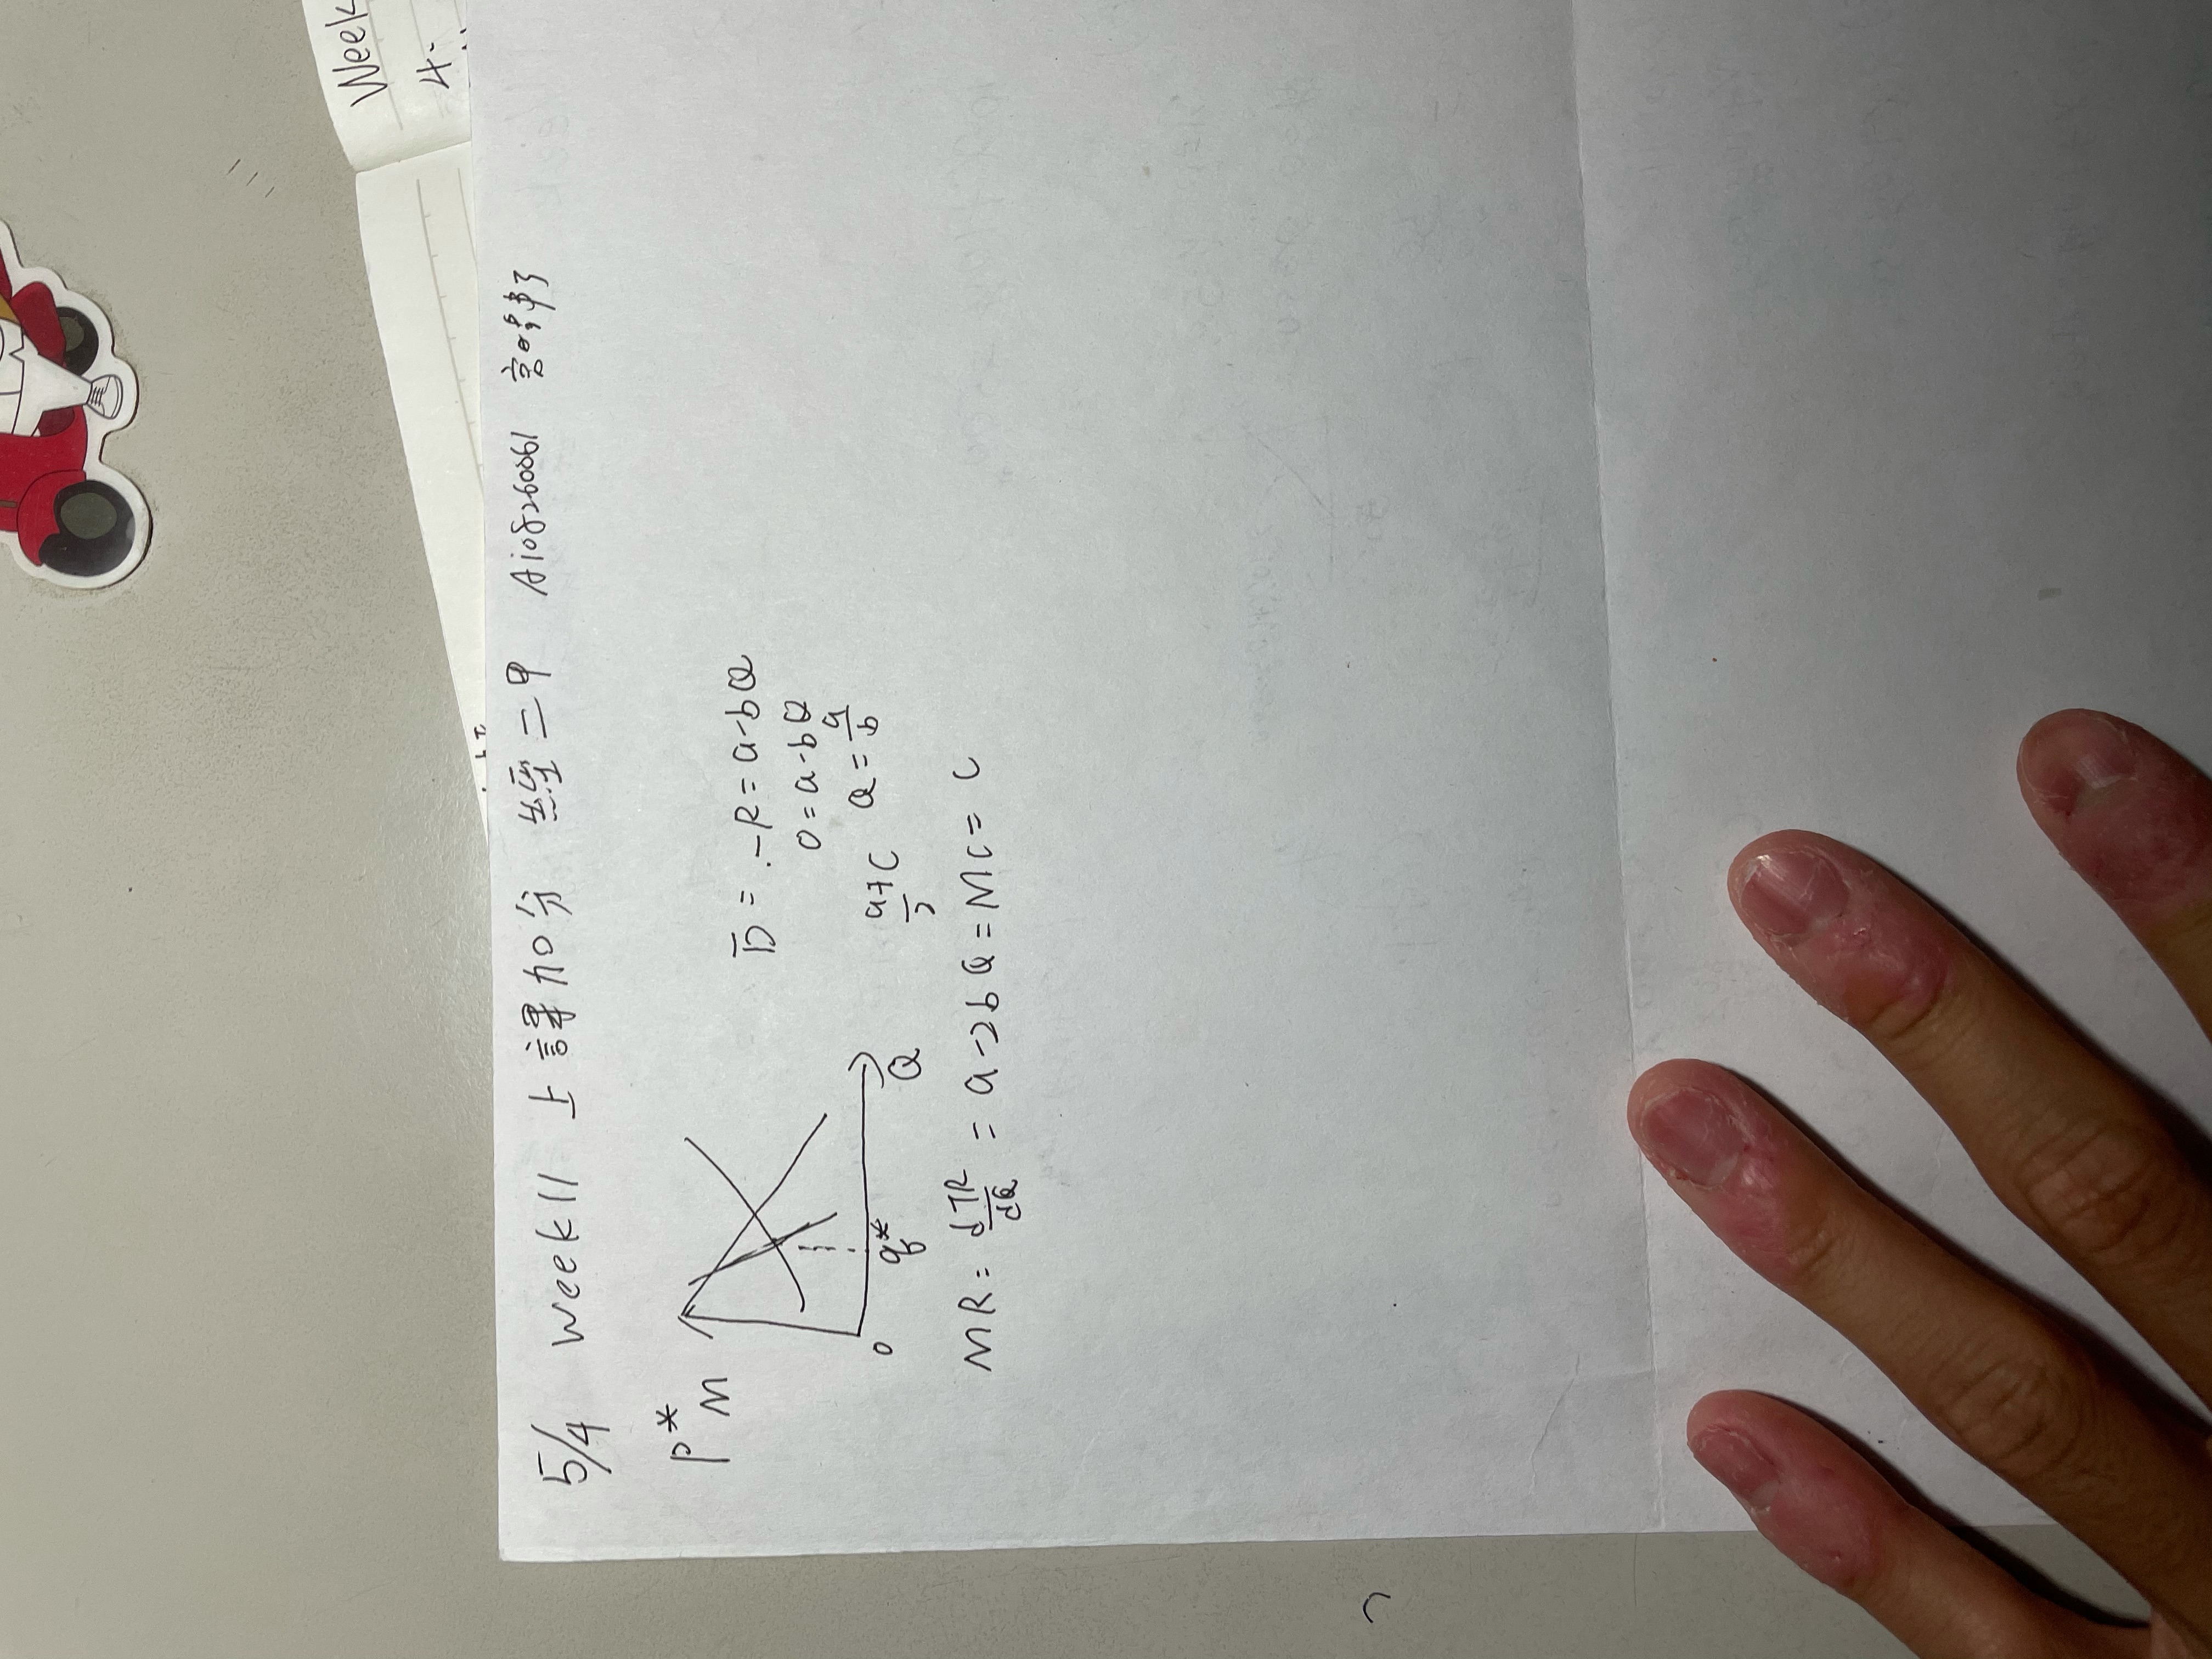 Week
4.
5/4 Week11 上課加分 經二甲 A108260061
P*M
D = -R = a-bQ
0 = a-bQ
Q = a/b
a+c/2
0 q* Q
MR = dTR/dQ = a-2bQ = MC = C